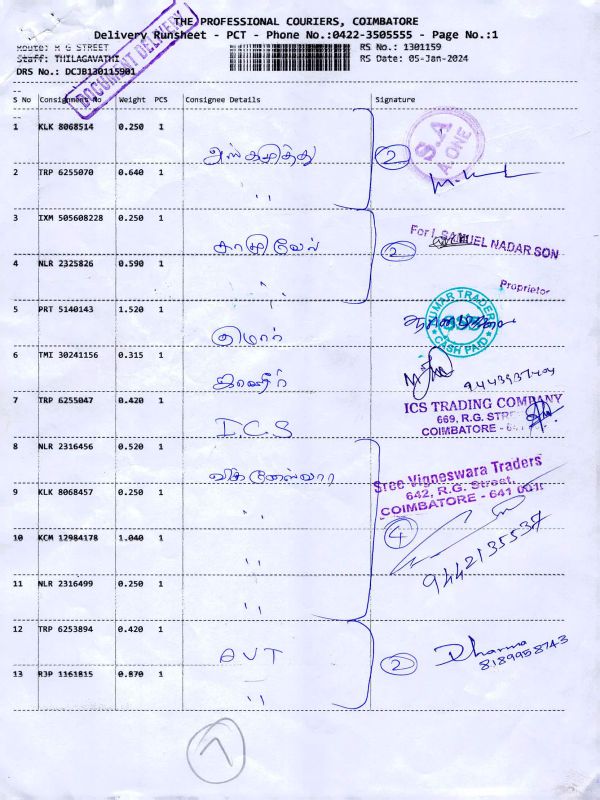 THE PROFESSIONAL COURIERS, COIMBATORE
Delivery Runsheet - PCT - Phone No.:0422-3505555 - Page No.:1
Route: M G STREET
RS No.: 1301159
Staff: THILAGAVATHI
RS Date: 05-Jan-2024
DRS No.: DCJB130115901
DOCUMENT DELIVERY
S No Consignment No Weight PCS Consignee Details Signature
1 KLK 8068514 0.250 1
2
S.A
A-ONE
2 TRP 6255070 0.640 1 "
3 IXM 505608228 0.250 1 சாமுவேல்
2
For I. SAMUEL NADAR SON
Proprietor
4 NLR 2325826 0.590 1 "
5 PRT 5140143 1.520 1 குமார்
KUMAR TRADERS
CASH PAID
6 TMI 30241156 0.315 1
7 TRP 6255047 0.420 1 I.C.S
ICS TRADING COMPANY
669, R.G. STREET
COIMBATORE - 641
8 NLR 2316456 0.520 1
Sree Vigneswara Traders
642, R.G. Street,
COIMBATORE - 641 001
9 KLK 8068457 0.250 1 "
4
10 KCM 12984178 1.040 1 "
9442135537
11 NLR 2316499 0.250 1 "
12 TRP 6253894 0.420 1 AVT
2
Dharma
8189958743
13 RJP 1161815 0.870 1 "